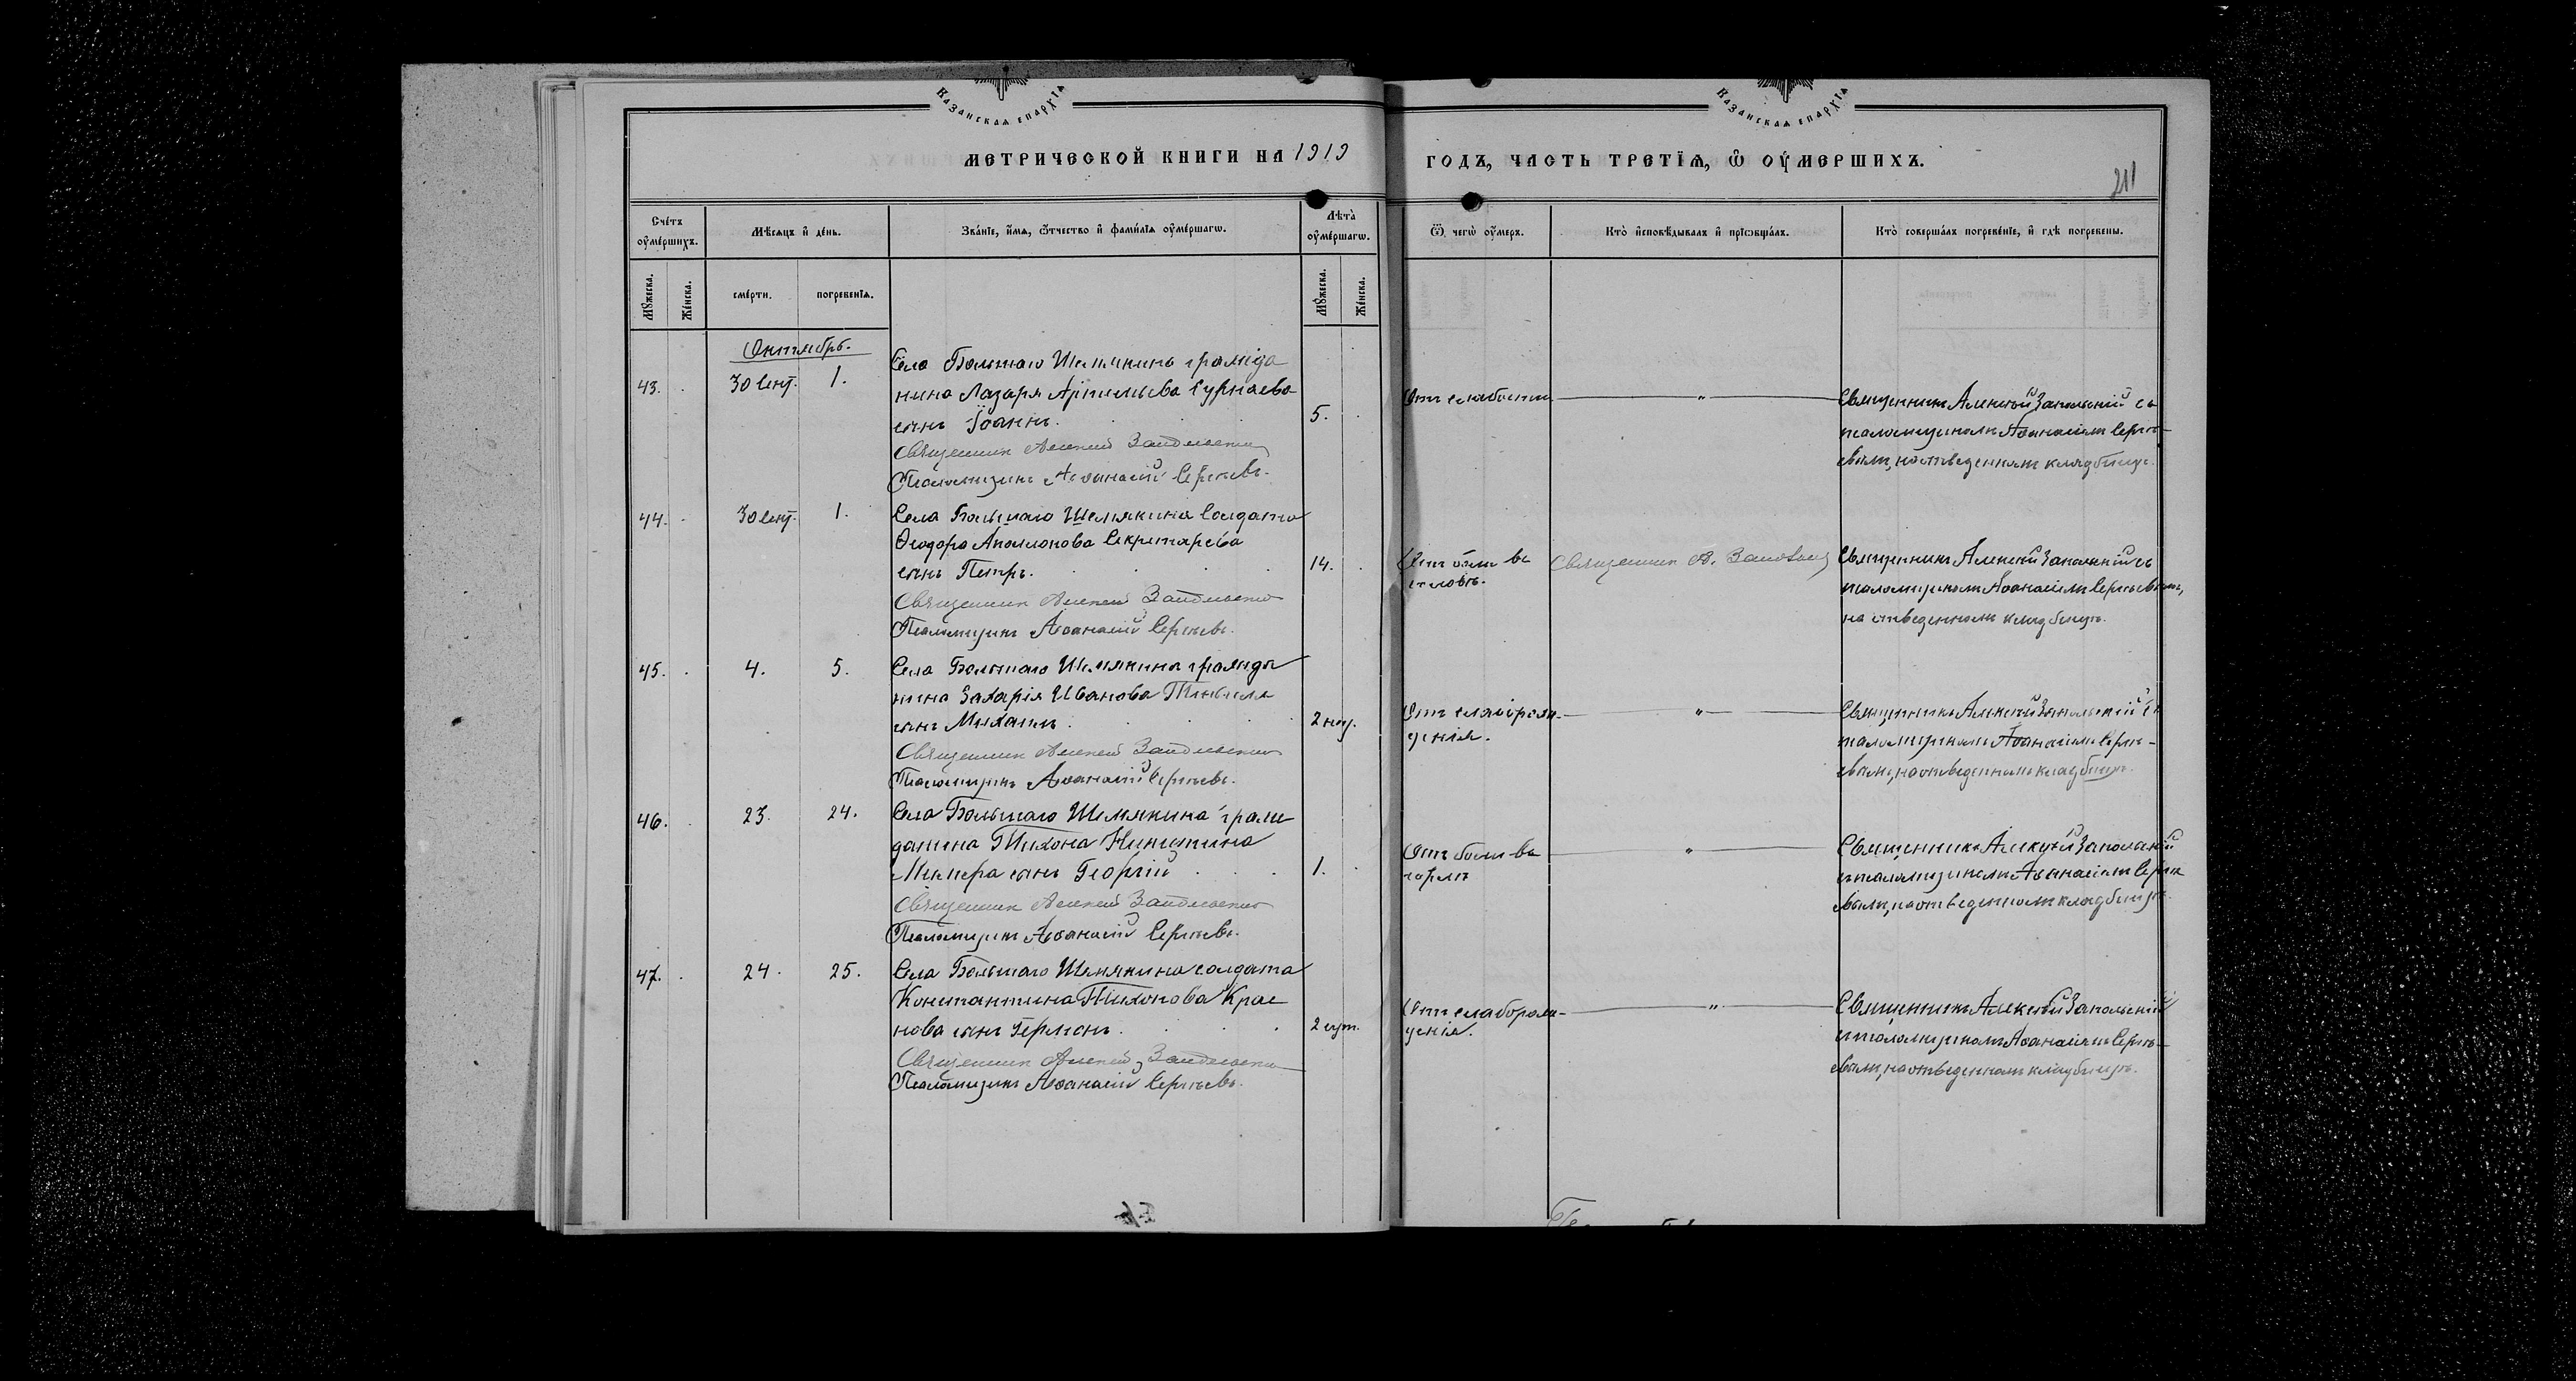 Казанская епархія
Казанская епархія
МЕТРИЧЕСКОЙ КНИГИ НА 1919 ГОДЪ, ЧАСТЬ ТРЕТІЯ, Ѿ ОУМЕРШИХЪ.
211
Счетъ оумершихъ.
Мѣсяцъ и день.
Званіе, имя, ѿчество и фамилія оумершагѡ.
Лѣта оумершагѡ.
Ѿ чегѡ оумеръ.
Кто исповѣдывалъ и пріѡбщалъ.
Кто совершалъ погребеніе, и гдѣ погребены.
Мꙋжеска.
Женска.
смерти.
погребенія.
Мꙋжеска.
Женска.
Октябрь.
43. 30 Сент. 1.
Села Большаго Шемякина гражда
нина Лазаря Артемьева
сынъ Іоаннъ. 5.
Священникъ Алексей Запольский
Псаломщикъ Аѳанасій Сергѣевъ.
Отъ слабости
Священникъ Алексѣй Запольскій съ
псаломщикомъ Аѳанасіемъ Сергѣ-
евымъ, на отведенномъ кладбищѣ.
44. 30 Сент. 1.
Села Большаго Шемякина Солдата
Ѳеодора Аполлонова Секретарева
сынъ Петръ. 14.
Священникъ Алексей Запольский
Псаломщикъ Аѳанасій Сергѣевъ.
Отъ боли въ
головѣ.
Священникъ А. Запольский
Священникъ Алексѣй Запольскій съ
псаломщикомъ Аѳанасіемъ Сергѣевымъ,
на отведенномъ кладбищѣ.
45. 4. 5.
Села Большаго Шемякина гражда
нина Захарія Иванова
сынъ Михаилъ. 2 нед.
Священникъ Алексей Запольский
Псаломщикъ Аѳанасій Сергѣевъ.
Отъ слаборож-
денія.
Священникъ Алексѣй Запольскій съ
псаломщикомъ Аѳанасіемъ Сергѣ-
евымъ, на отведенномъ кладбищѣ.
46. 23. 24.
Села Большаго Шемякина граж
данина Тихона Никитина
сынъ Георгій 1.
Священникъ Алексей Запольский
Псаломщикъ Аѳанасій Сергѣевъ.
Отъ боли въ
горлѣ
Священникъ Алексѣй Запольскій
съ псаломщикомъ Аѳанасіемъ Сергѣ
евымъ, на отведенномъ кладбищѣ.
47. 24. 25.
Села Большаго Шемякина солдата
Константина Тихонова Крас
нова сынъ Германъ. 2 сут.
Священникъ Алексей Запольский
Псаломщикъ Аѳанасій Сергѣевъ.
Отъ слаборож-
денія.
Священникъ Алексѣй Запольскій
съ псаломщикомъ Аѳанасіемъ Сергѣ-
евымъ, на отведенномъ кладбищѣ.